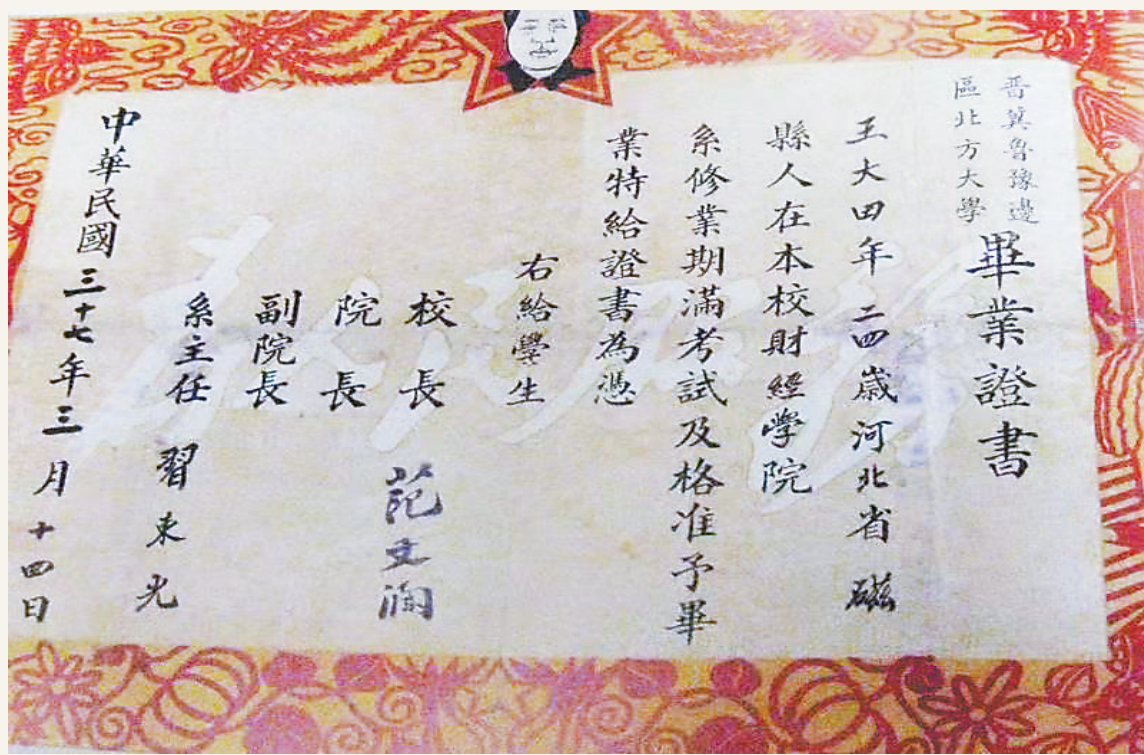 晋冀魯豫邊
區北方大學
畢業證書
王大田年二四歲河北省磁
縣人在本校財經學院
系修業期滿考試及格准予畢
業特給證書為憑
右給學生
校長 范文瀾
院長
副院長
系主任 習東光
中華民國三十七年三月十四日